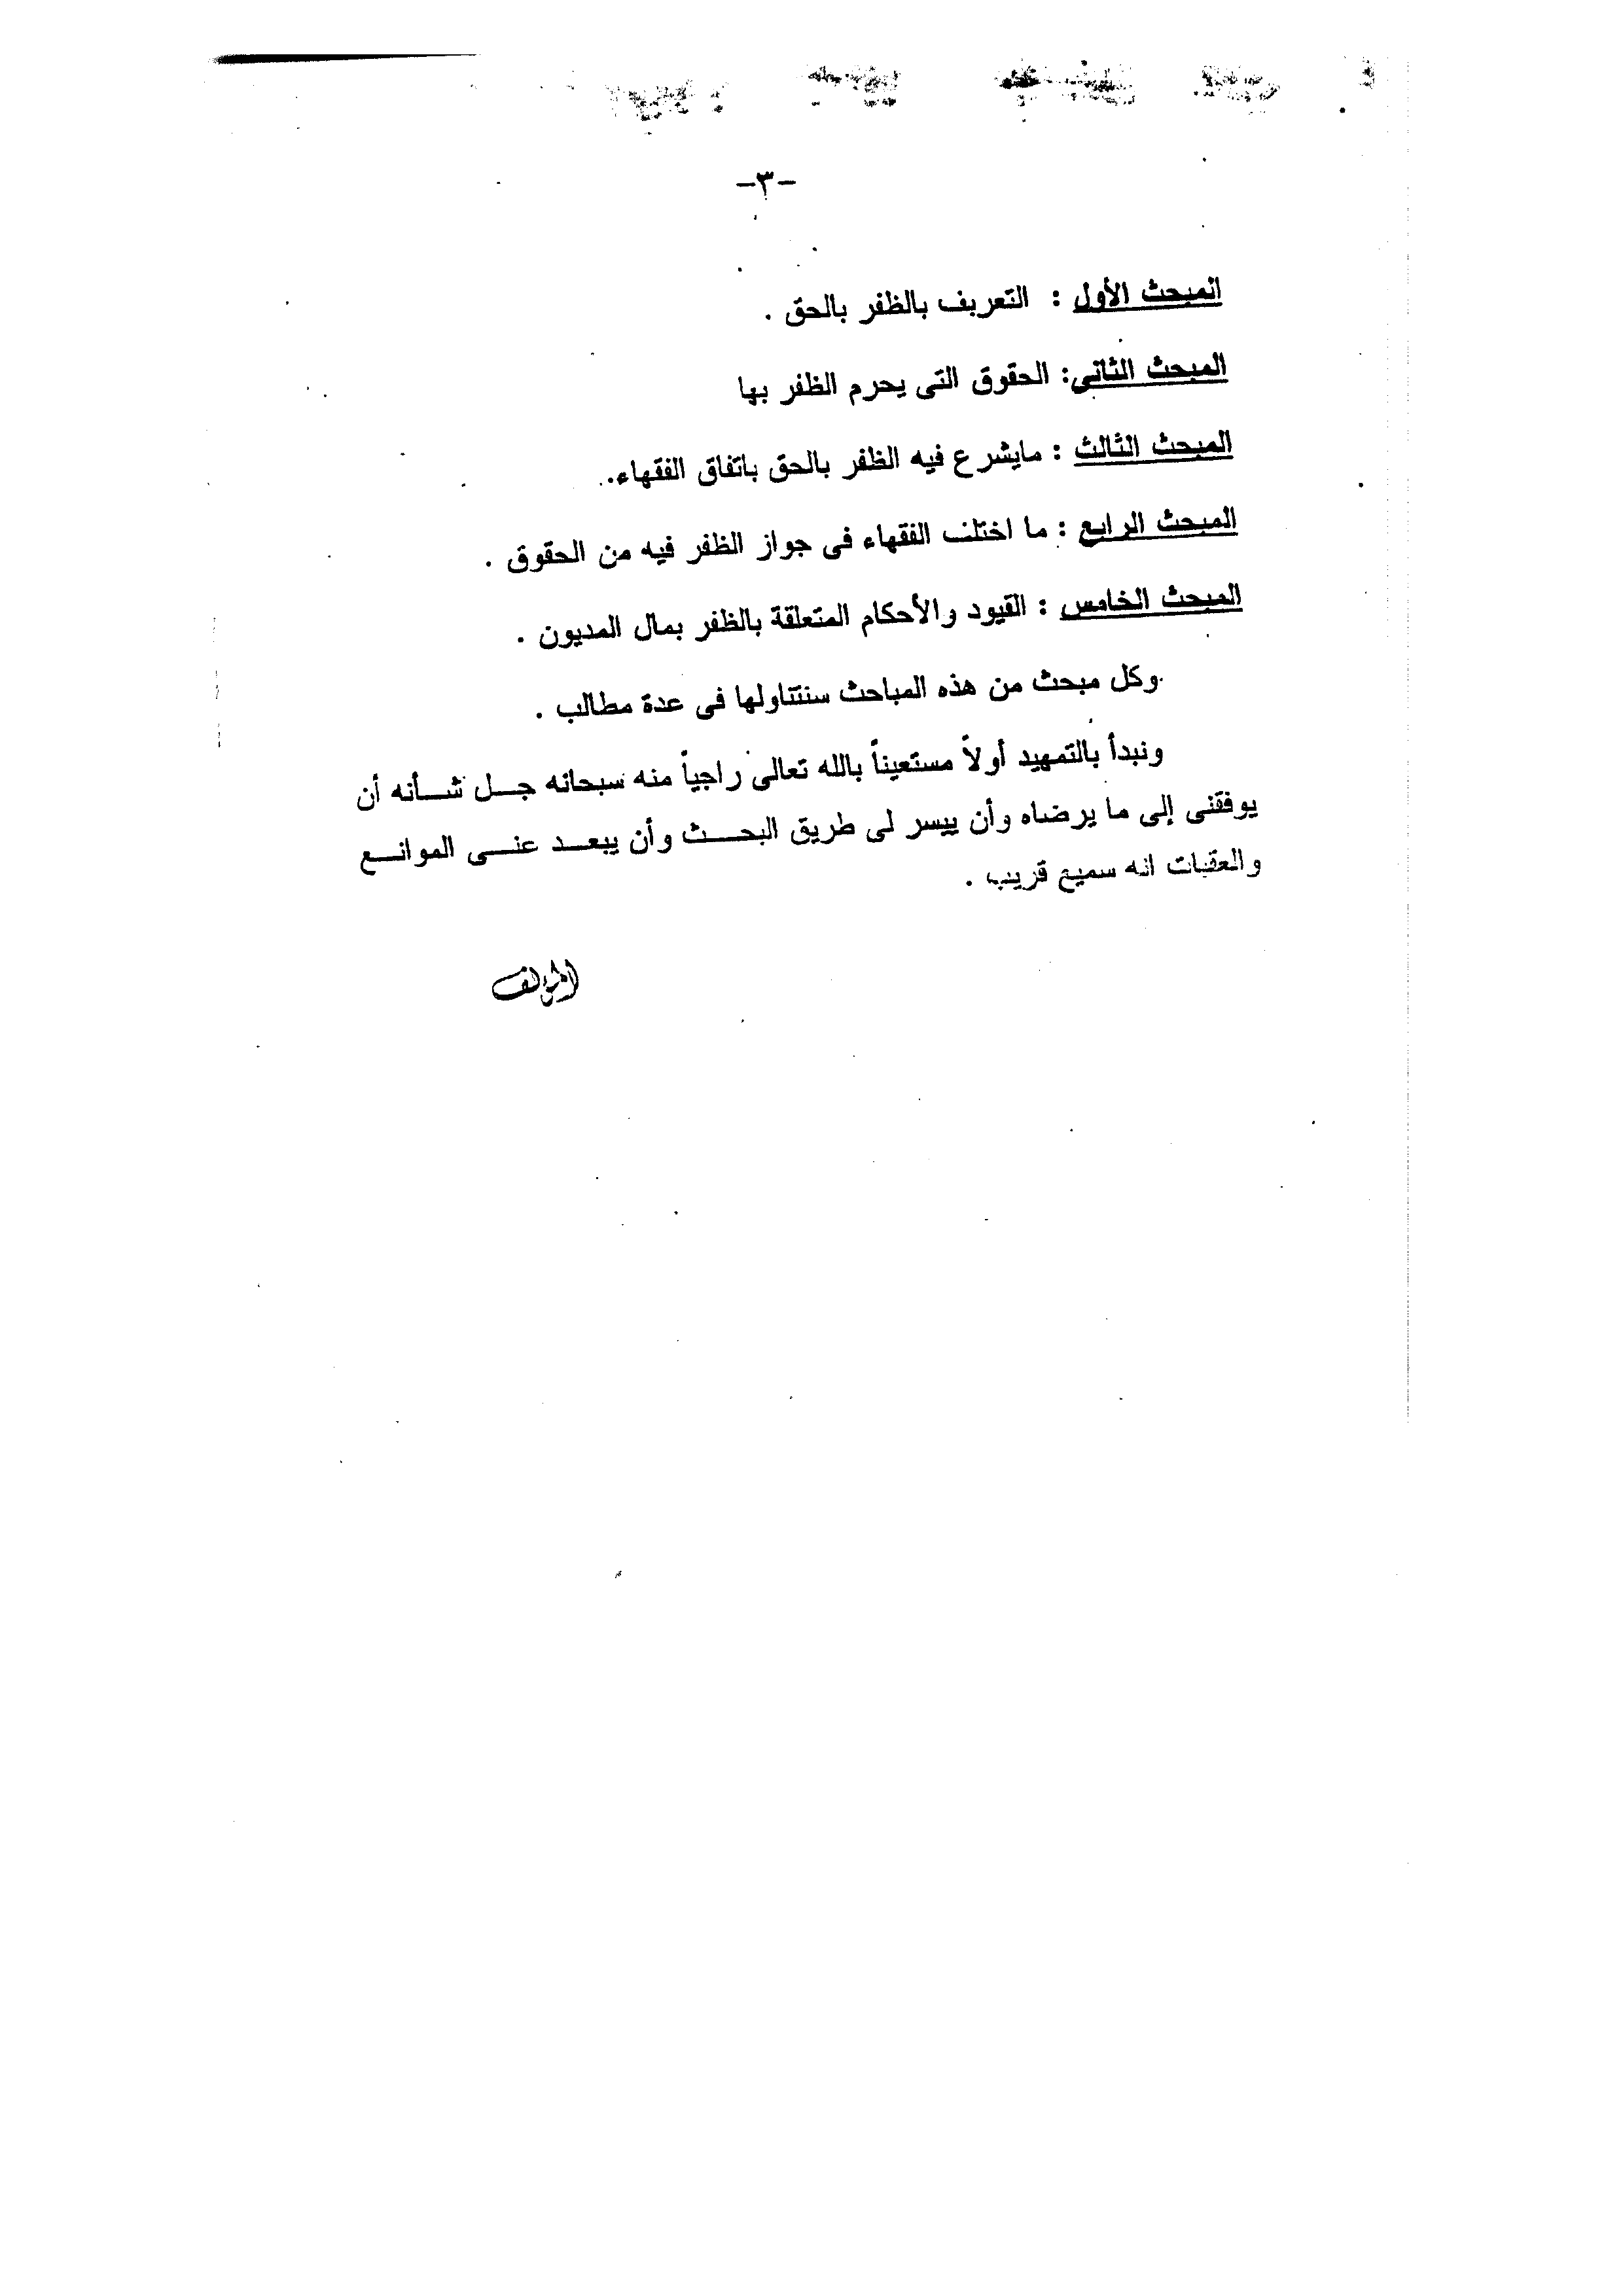 -٣-
المبحث الأول : التعريف بالظفر بالحق .
المبحث الثانى: الحقوق التى يحرم الظفر بها
المبحث الثالث : مايشرع فيه الظفر بالحق باتفاق الفقهاء.
المبحث الرابع : ما اختلف الفقهاء فى جواز الظفر فيه من الحقوق .
المبحث الخامس : القيود والأحكام المتعلقة بالظفر بمال المديون .
وكل مبحث من هذه المباحث سنتناولها فى عدة مطالب .
ونبدأ بالتمهيد أولاً مستعيناً بالله تعالى راجياً منه سبحانه جل شأنه أن
يوفقنى إلى ما يرضاه وأن ييسر لى طريق البحث وأن يبعد عنى الموانع
والعقبات انه سميع قريب .
المؤلف